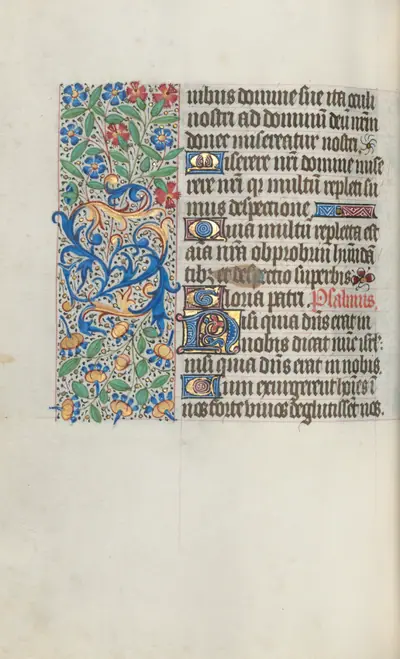 nibus domine sue ita oculi
nostri ad dominū deū nr̄m
donec misereatur nostri
Miserere nr̄i domine mise
rere nr̄i qr̄ multū repleti su
mus despectione
Quia multū repleta est
aīa nr̄a obprobriū habūdā
tibꝫ et despectio superbis
Gloria patri. Psalmus.
Nisi quia dn̄s erat in
nobis dicat nūc isrl̄
nisi quia dn̄s erat in nobis.
Cum exurgerent hoīes ī
nos forte vivos deglutissēt nos.